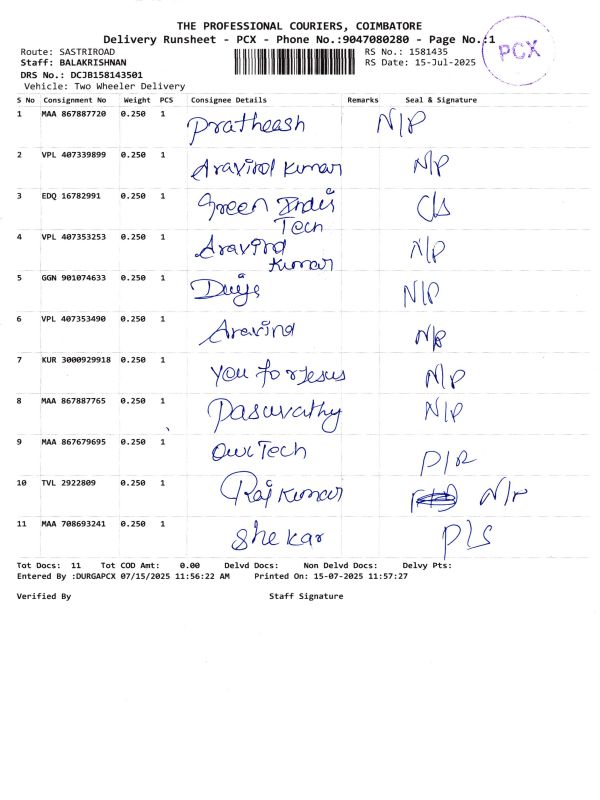 THE PROFESSIONAL COURIERS, COIMBATORE
Delivery Runsheet - PCX - Phone No.:9047080280 - Page No.:1
PCX
Route: SASTRIROAD RS No.: 1581435
Staff: BALAKRISHNAN RS Date: 15-Jul-2025
DRS No.: DCJB158143501
Vehicle: Two Wheeler Delivery
S No Consignment No Weight PCS Consignee Details Remarks Seal & Signature
1 MAA 867887720 0.250 1 Pratheash N/P
2 VPL 407339899 0.250 1 Aravind Kumar N/P
3 EDQ 16782991 0.250 1 Green
Tech
4 VPL 407353253 0.250 1 Aravind N/P
Kumar
5 GGN 901074633 0.250 1 N/P
6 VPL 407353490 0.250 1 Aravind N/P
7 KUR 3000929918 0.250 1 You for Jesus N/P
8 MAA 867887765 0.250 1 Pasuvathy N/P
9 MAA 867679695 0.250 1 Tech
10 TVL 2922809 0.250 1 Raj Kumar
11 MAA 708693241 0.250 1 Shekar
Tot Docs: 11 Tot COD Amt: 0.00 Delvd Docs: Non Delvd Docs: Delvy Pts:
Entered By :DURGAPCX 07/15/2025 11:56:22 AM Printed On: 15-07-2025 11:57:27
Verified By Staff Signature